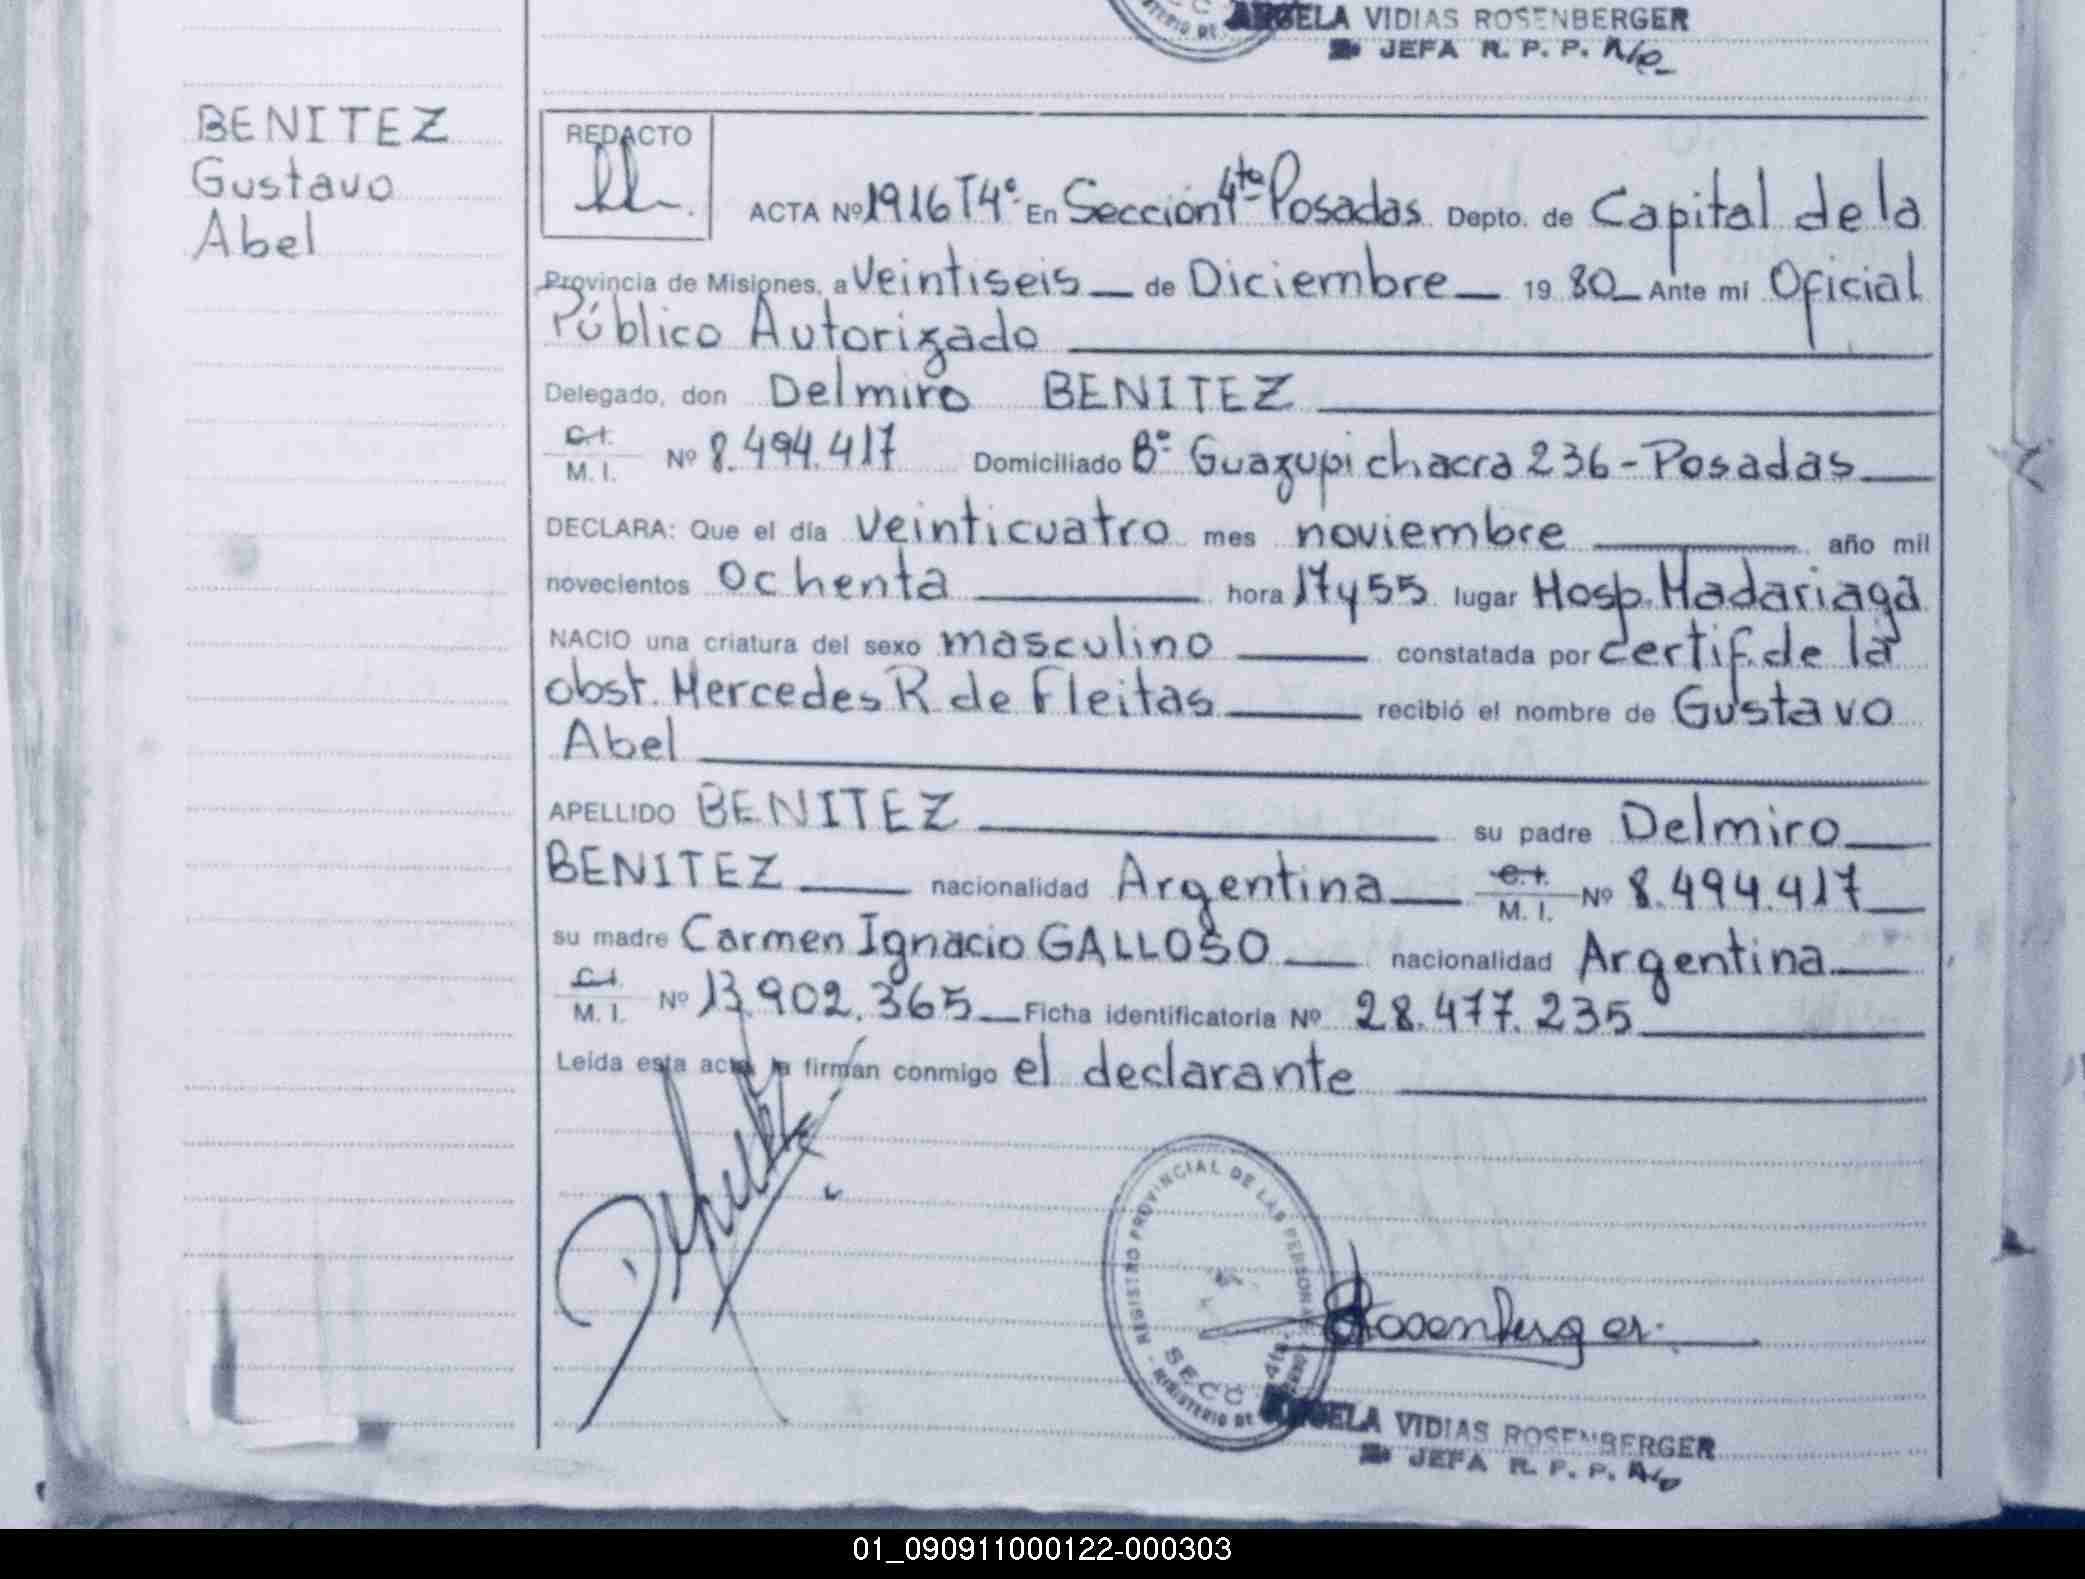 ANGELA VIDIAS ROSENBERGER
JEFA R. P. P.
BENITEZ
Gustavo
Abel
REDACTO
ACTA Nº 1916 T4º En Sección 4ta Posadas Depto. de Capital de la
Provincia de Misiones, a Veintiseis de Diciembre 19 80 Ante mi Oficial
Público Autorizado
Delegado, don Delmiro BENITEZ
C.I. M. I. Nº 8.494.417 Domiciliado Bº Guazupi chacra 236 - Posadas
DECLARA: Que el día veinticuatro mes noviembre año mil
novecientos ochenta hora 17 y 55 lugar Hosp. Madariaga
NACIO una criatura del sexo masculino constatada por certif. de la
obst. Mercedes R. de Fleitas recibió el nombre de Gustavo
Abel
APELLIDO BENITEZ su padre Delmiro
BENITEZ nacionalidad Argentina C.I. M. I. Nº 8.494.417
su madre Carmen Ignacio GALLOSO nacionalidad Argentina
C.I. M. I. Nº 13.902.365 Ficha identificatoria Nº 28.477.235
Leída esta acta la firman conmigo el declarante
REGISTRO PROVINCIAL DE LAS PERSONAS
SECC. 4ta.
MINISTERIO DE
Rosenberger
ANGELA VIDIAS ROSENBERGER
JEFA R. P. P.
01_090911000122-000303